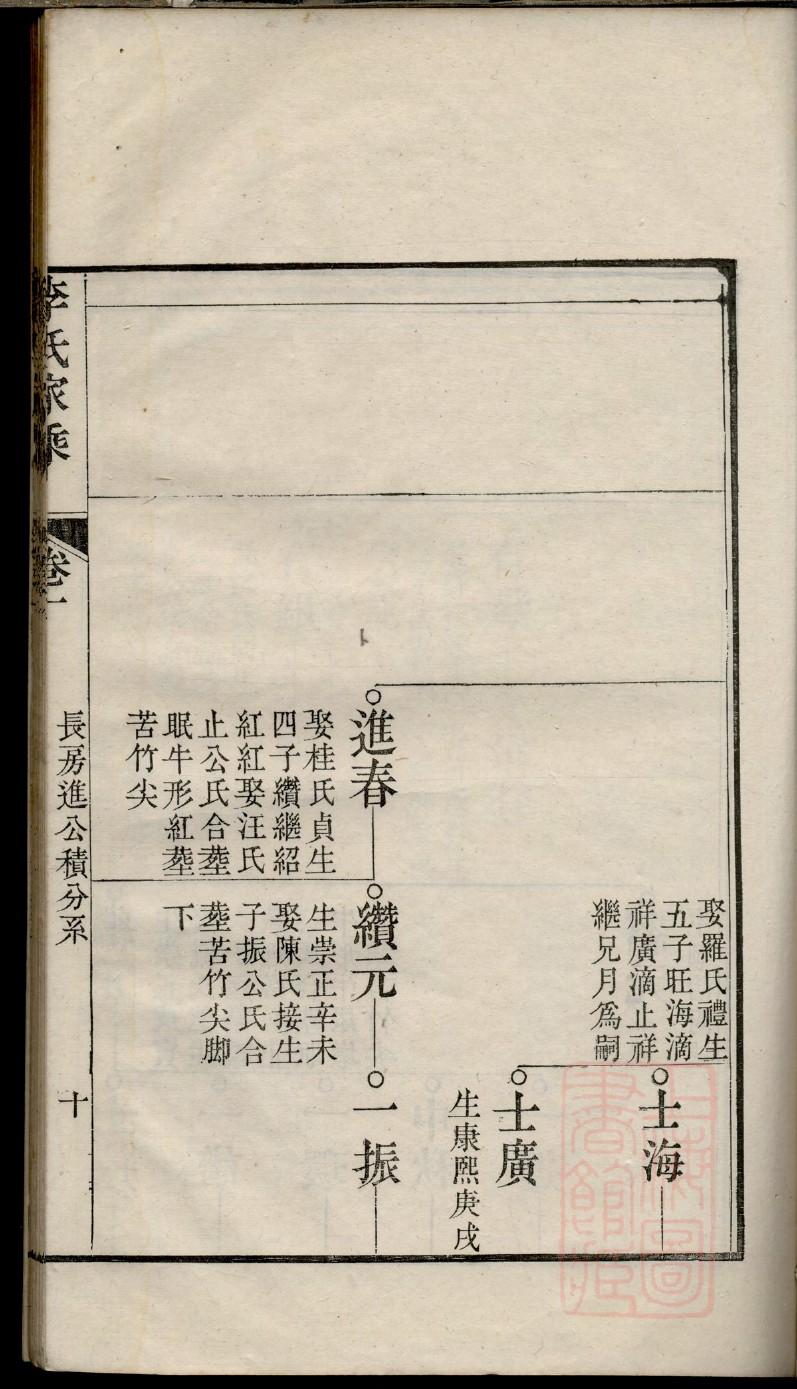 娶羅氏禮生
五子旺海滴
祥廣滴止祥
繼兄月爲嗣
士海
士廣
生康熙庚戌
進春
娶桂氏貞生
四子纘繼紹
紅紅娶汪氏
止公氏合塟
眠牛形紅塟
苦竹尖
纘元
生崇正辛未
娶陳氏接生
子振公氏合
塟苦竹尖脚
下
一振
李氏家乘
卷一
長房進公積分系
十
上海圖
書館藏